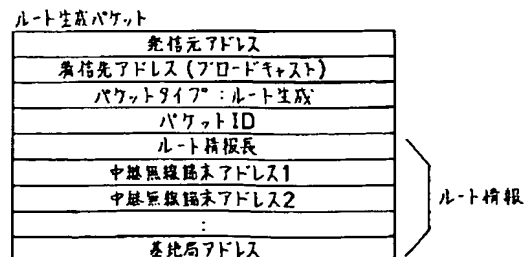 ルート生成パケット
発信元アドレス
着信先アドレス (ブロードキャスト)
パケットタイプ:ルート生成
パケットID
ルート情報長
中継無線端末アドレス1
中継無線端末アドレス2
:
基地局アドレス
ルート情報